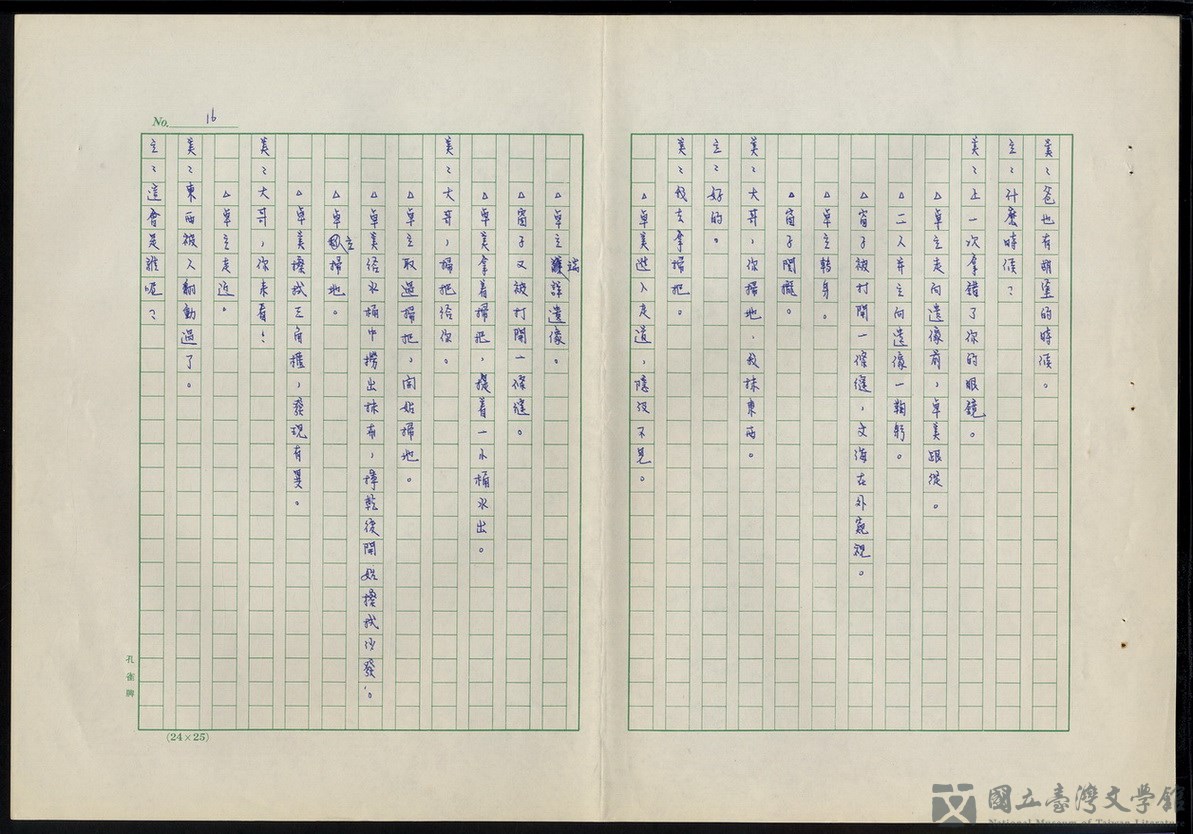 美：爸也有胡塗的時候。
立：什麼時候？
美：上一次拿錯了你的眼鏡。
△卓立走向遺像前，卓美跟從。
△二人并立向遺像一鞠躬。
△窗子被打開一條縫，文海在外窺視。
△卓立轉身。
△窗子關攏。
美：大哥，你掃地，我抹東西。
立：好的。
美：我去拿掃把。
△卓美進入走道，隱沒不見。
No. 16
△卓立端詳遺像。
△窗子又被打開一條縫。
△卓美拿着掃把，提着一小桶水出。
美：大哥，掃把給你。
△卓立取過掃把，開始掃地。
△卓美從水桶中撈出抹布，擰乾後開始擦拭沙發。
△卓立掃地。
△卓美擦拭三角櫃，發現有異。
美：大哥，你來看！
△卓立走近。
美：東西被人翻動過了。
立：這會是誰呢？
孔雀牌
(24×25)
國立臺灣文學館
National Museum of Taiwan Literature